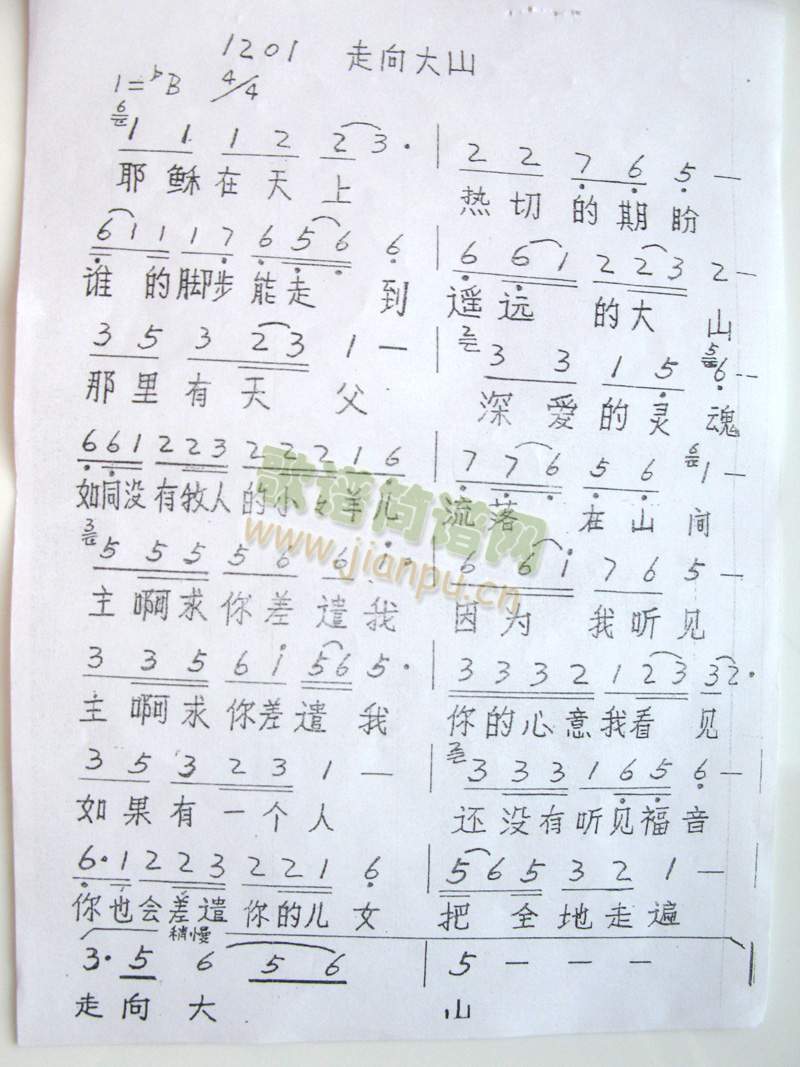 1201 走向大山
1=♭B 4/4
6 1 1 1 2 2 3 · | 2 2 7 6 5 —
耶稣在天上 热切的期盼
6 1 1 1 7 6 5 6 6 | 6 6 1 2 2 3 2 —
谁的脚步能走到 遥远的大山
3 5 3 2 3 1 — | 2 3 3 1 5 5 6 ·
那里有天父 深爱的灵魂
6 6 1 2 2 3 2 2 2 1 6 | 7 7 6 5 6 6 1 —
如同没有牧人的小々羊儿 流落在山间
3 5 5 5 5 6 6 i · | 6 6 i 7 6 5 —
主啊求你差遣我 因为我听见
3 3 5 6 i 5 6 5 · | 3 3 3 2 1 2 3 3 2 ·
主啊求你差遣我 你的心意我看见
3 5 3 2 3 1 — | 2 3 3 3 1 6 5 6 —
如果有一个人 还没有听见福音
6 · 1 2 2 3 2 2 1 6 | 5 6 5 3 2 1 —
你也会差遣你的儿女 把全地走遍
稍慢
3 · 5 6 5 6 | 5 — — —
走向大山
歌谱简谱网
www.jianpu.cn